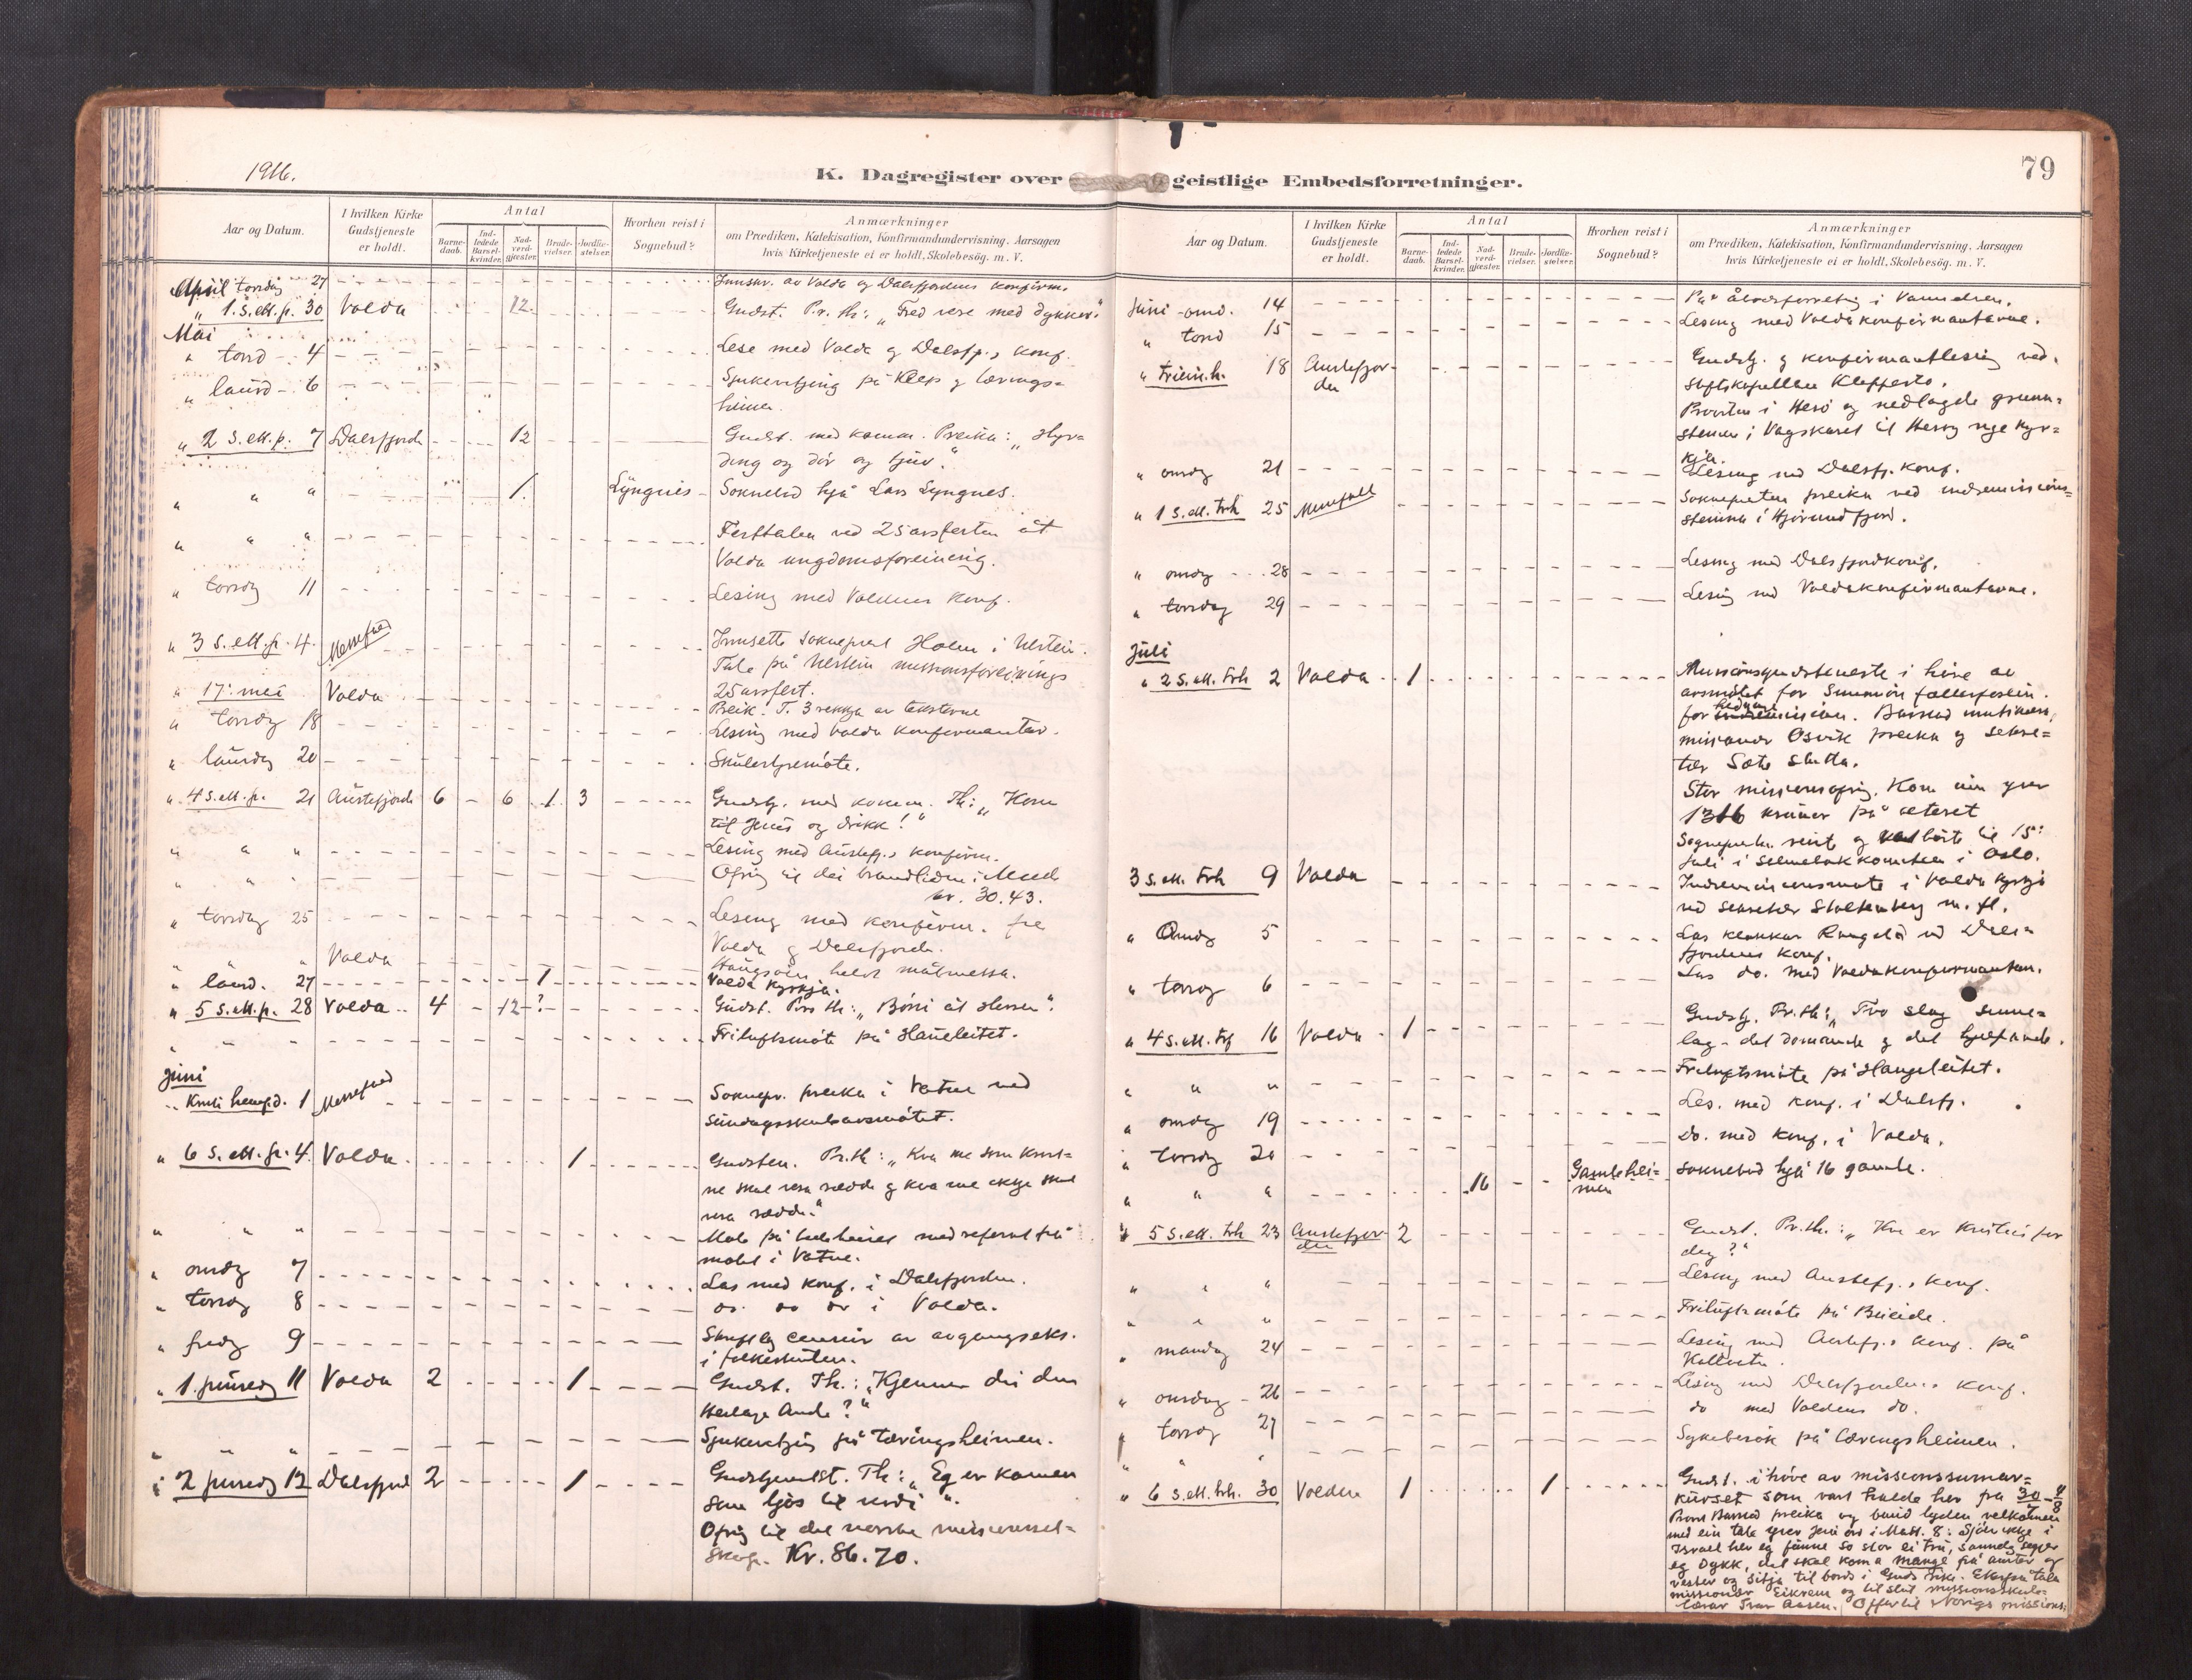 1916.
K. Dagregister over geistlige Embedsforretninger.
79
Aar og Datum.
I hvilken Kirke Gudstjeneste er holdt.
Antal
Barne-daab.
Ind-ledede Barsel-kvinder.
Nad-verd-gjæster.
Brude-vielser.
Jordfæ-stelser.
Hvorhen reist i Sognebud?
Anmærkninger
om Prædiken, Katekisation, Konfirmandundervisning. Aarsagen
hvis Kirketjeneste ei er holdt. Skolebesög. m. V.
April torsdag 27 Innskr. av Volda og Dalsfjordens konfirm.
" 1. S. ett. p. 30 Volda 12 Gudst. Pr. th: "Fred vere med dykker"
Mai
" torsd 4 Lese med Volda og Dalsfj.s konf.
" laurd 6 Sjukevitjing på Kleps og tærings=
heimen.
" 2 S. ett. p. 7 Dalsfjord 12 Gudst. med komm. Preika: "Hyr=
ding og dör og tjuv."
" " " 1. Lyngnes Soknebud hjå Lars Lyngnes.
" " " Festtalen ved 25 årsfesten åt
Volda ungdomsforeining.
" torsdg 11 Lesing med Voldens konf.
" 3 S. ett. p. 4. Messefall Innsette sokneprest Holm i Ulstein.
Tale på Ulstein missionsforeinings
25 årsfest.
" 17. mai Volda Preik. T. 3 rekkja av tekstene
" torsdg 18 Lesing med Volda konfirmantar.
" laurdg 20 Skulestyremöte.
" 4 S. ett. p. 21 Austefjord 6 6 1 3 Gudstj. med komm. Th: "Kom
til Jesus og drikk!"
" " " Lesing med Austefj.s konfirm.
" " " Ofring til dei brandlidne i
kr. 30.43.
" torsdag 25 Lesing med konfirm. fra
Volda og Dalsfjord.
" " " Volda Haugsöen heldt målmessa.
" laurd. 27 1 Volda kyrkja.
" 5 S. ett. p. 28 Volda 4 12 ? Gudst. Prs th: "Böni åt Herren".
" " " Friluftsmöte på Haueleitet.
Juni
" Kristi himf.d. 1 Messefall Soknepr. preika i Vatne ved
sundagsskuleårsmötet.
" 6 S. ett. p. 4. Volda 1 Gudsten. Pr.th: "Kva me som krist=
ne skal vera rædde og kva me ikkje skal
vera rædde."
" " " Möte på bedehuset med referat frå
mötet i Vatne.
" onsdg 7 Las med konf. i Dalsfjorden.
" torsdg 8 do. do do i Volda.
" fredg 9 Skriftleg censur av avgangseks.
i folkeskulen.
" 1. pinsedg 11 Volda 2 1 Gudst. Th.: "Kjenner du den
Heilage Ande?"
" " " Sjukevitjing på tæringsheimen.
" 2 pinsedg 12 Dalsfjord 2 1 Gudstjenest. Th: "Eg er komen
som ljos til verdi".
Ofring til det norske missionssel=
skap. Kr. 86.70.
Aar og Datum.
I hvilken Kirke Gudstjeneste er holdt.
Antal
Barne-daab.
Ind-ledede Barsel-kvinder.
Nad-verd-gjæster.
Brude-vielser.
Jordfæ-stelser.
Hvorhen reist i Sognebud?
Anmærkninger
om Prædiken, Katekisation, Konfirmandundervisning. Aarsagen
hvis Kirketjeneste ei er holdt. Skolebesög. m. V.
Juni onsd. 14 På i
" torsd 15 Lesing med Volda konfirmantarne.
" Triein.h. 18 Austefjor-
den Gudstj. og konfirmantlesing ved
stiftskapellan
Prosten i Herö og nedlagde grunn=
steinen i Vågskaret til Heröy nye kyr=
kja.
" onsdg 21 Lesing med Dalsfj. konf.
" 1 S. ett. trh 25 Messefall Soknepresten preika ved indremissions=
stemna i Hjörundfjord.
" onsdg 28 Lesing med Dalsfjordkonf.
" torsdag 29 Lesing med Voldakonfirmantarne.
Juli
" 2 S. ett. trh 2 Volda 1 Missionsgudsteneste i höve av
årsmötet for Sunnmör fellesforein.
for hedningmission.
missionær Osvik preika og sekre=
tær Sæte slutta.
Stor missionsofring. Kom inn yver
1316 krunor på
til 15:
Juli i i Oslo.
3 S. ett. trh 9 Volda Indremissionsmöte i Volda kyrkja
ved sekretær Stoltenberg m. fl.
" Onsdg 5 Las klokkar ved Dals=
fjordens konf.
" torsdg 6 Las do. med Voldakonfirmantan.
" 4 S. ett. trh 16 Volda 1 Gudstj. Pr.th: "Two slag
lag - det og det hjelpande.
" " " Friluftsmöte på Haugeleitet.
" onsdg 19 Les. med konf. i Dalsfj.
" torsdg 20 Do. med konf. i Volda.
" " " 16 Gamlehei=
men Soknebud hjå 16 gamle.
" 5 S. ett. trh 23 Austefjor-
den 2 Gudst. Pr.th.: "Kva er Kristus for
deg?"
" " " Lesing med Austefj.s konf.
" " " Friluftsmöte på
" mandag 24 Lesing med Austefj.s konf. på
" onsdag 26 Lesing med Dalsfjordens konf.
" torsdg 27 do med Voldens do.
" " " Sykebesök på tæringsheimen.
" 6 S. ett. trh. 30 Volden 1 1 Gudst. i höve av missionssumar=
kurset som vart halde her frå 30/7 - 4/8
preika og baud lyden velkomen
med ein tale yver Jesu ord i Matt. 8: Sjölv ikkje i
Israel hev eg funne so stor ei tru, sanneleg segjer
eg Dykk, det skal koma mange frå auster og
vester og sitja til bords i Guds rike. Etterpå tala
missionær Eikrem og til slut missionsskule=
lærar Aasen. Offer til Norigs missions: